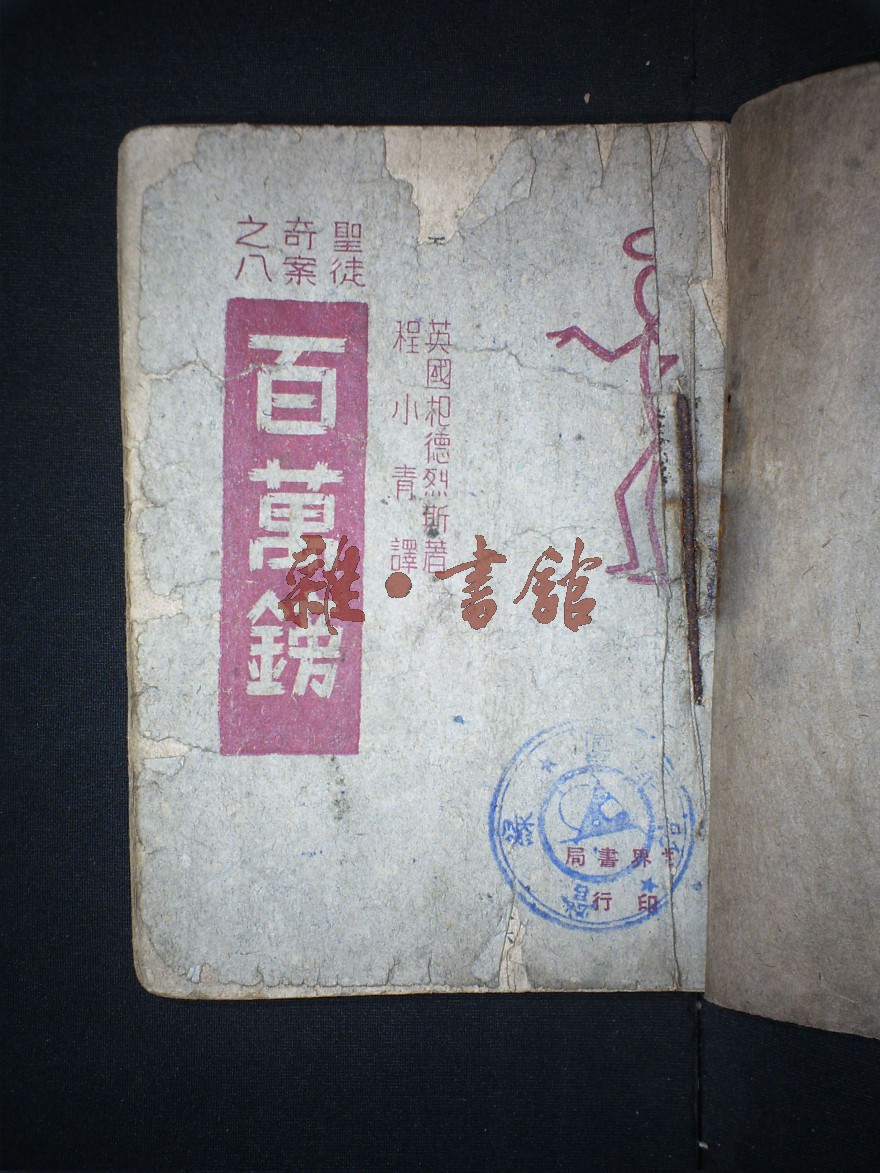 聖徒
奇案
之八
百萬鎊
英國杞德烈斯著
程小青譯
世界書局
印行
雜·書館